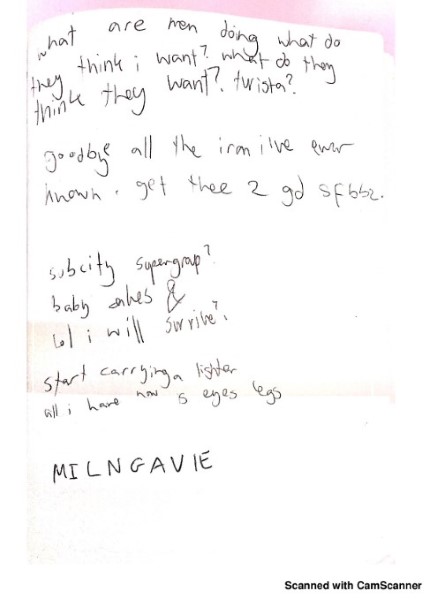 what are men doing what do
they think i want? what do they
think they want? twista?
goodbye all the iron i've ever
known. get thee 2 gd sfbbz.
subcity supergroup?
baby &
lol i will survive?
start carrying a lighter
all i have now is eyes legs
MILNGAVIE
Scanned with CamScanner